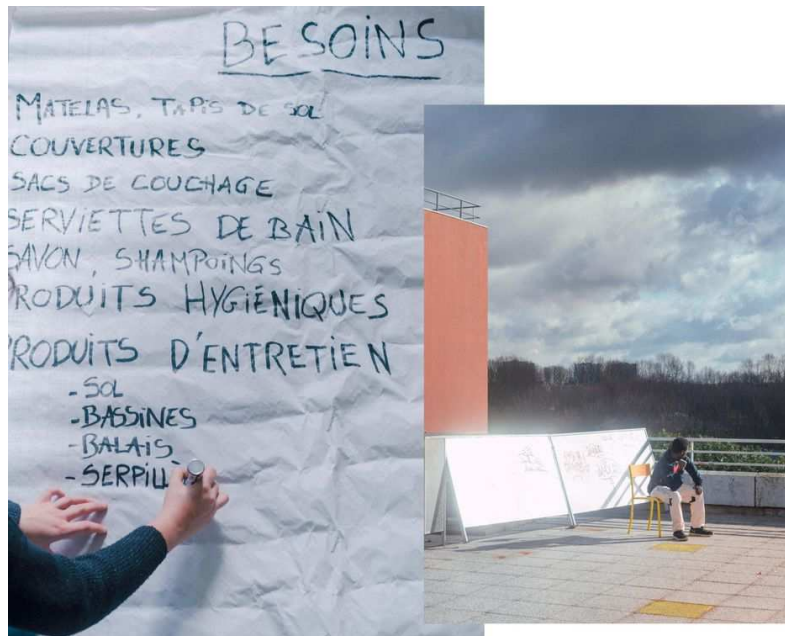 BESOINS
MATELAS, TAPIS DE SOL
COUVERTURES
SACS DE COUCHAGE
SERVIETTES DE BAIN
SAVON, SHAMPOINGS
PRODUITS HYGIÉNIQUES
PRODUITS D'ENTRETIEN
- SOL
- BASSINES
- BALAIS
- SERPILL